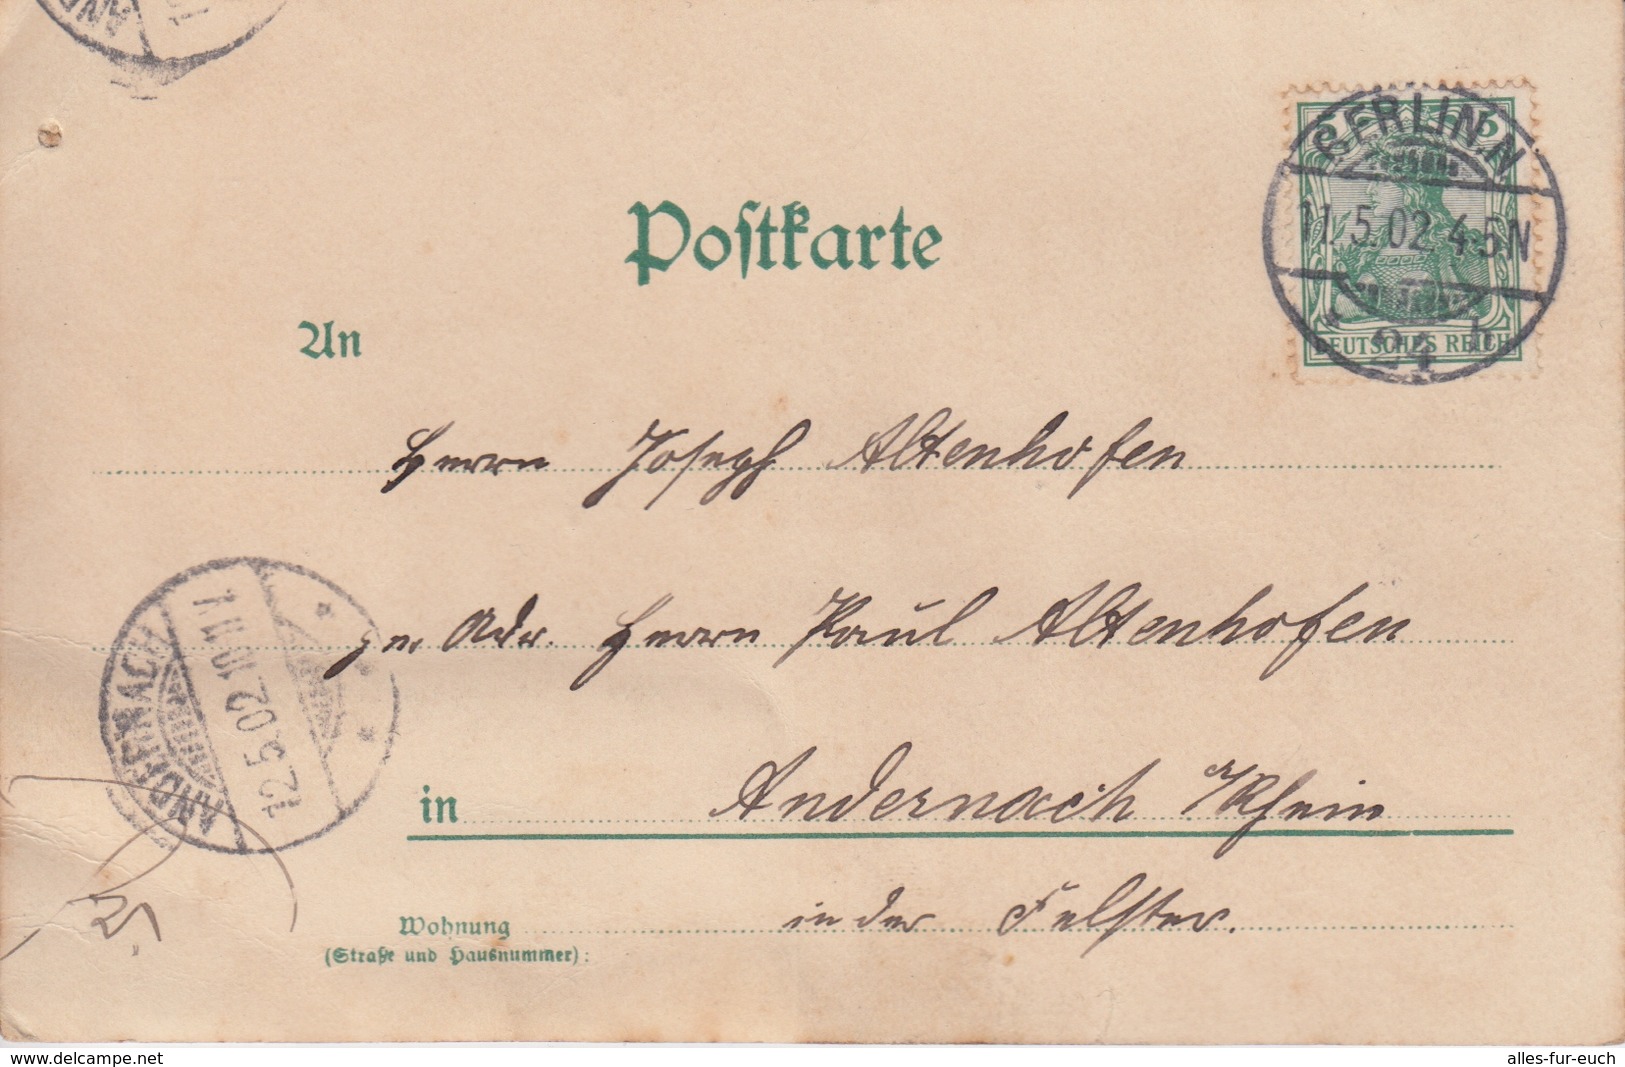 Postkarte
5 5
BERLIN.N
11.5.02 4-5N
24 h
DEUTSCHES REICH
An
Herrn Joseph Altenhofen
per Adr. Herrn Paul Altenhofen
ANDERNACH
12.5.02.10-11V.
in Andernach a/Rhein
in der Felster.
Wohnung
(Straße und Hausnummer):
www.delcampe.net
alles-fur-euch